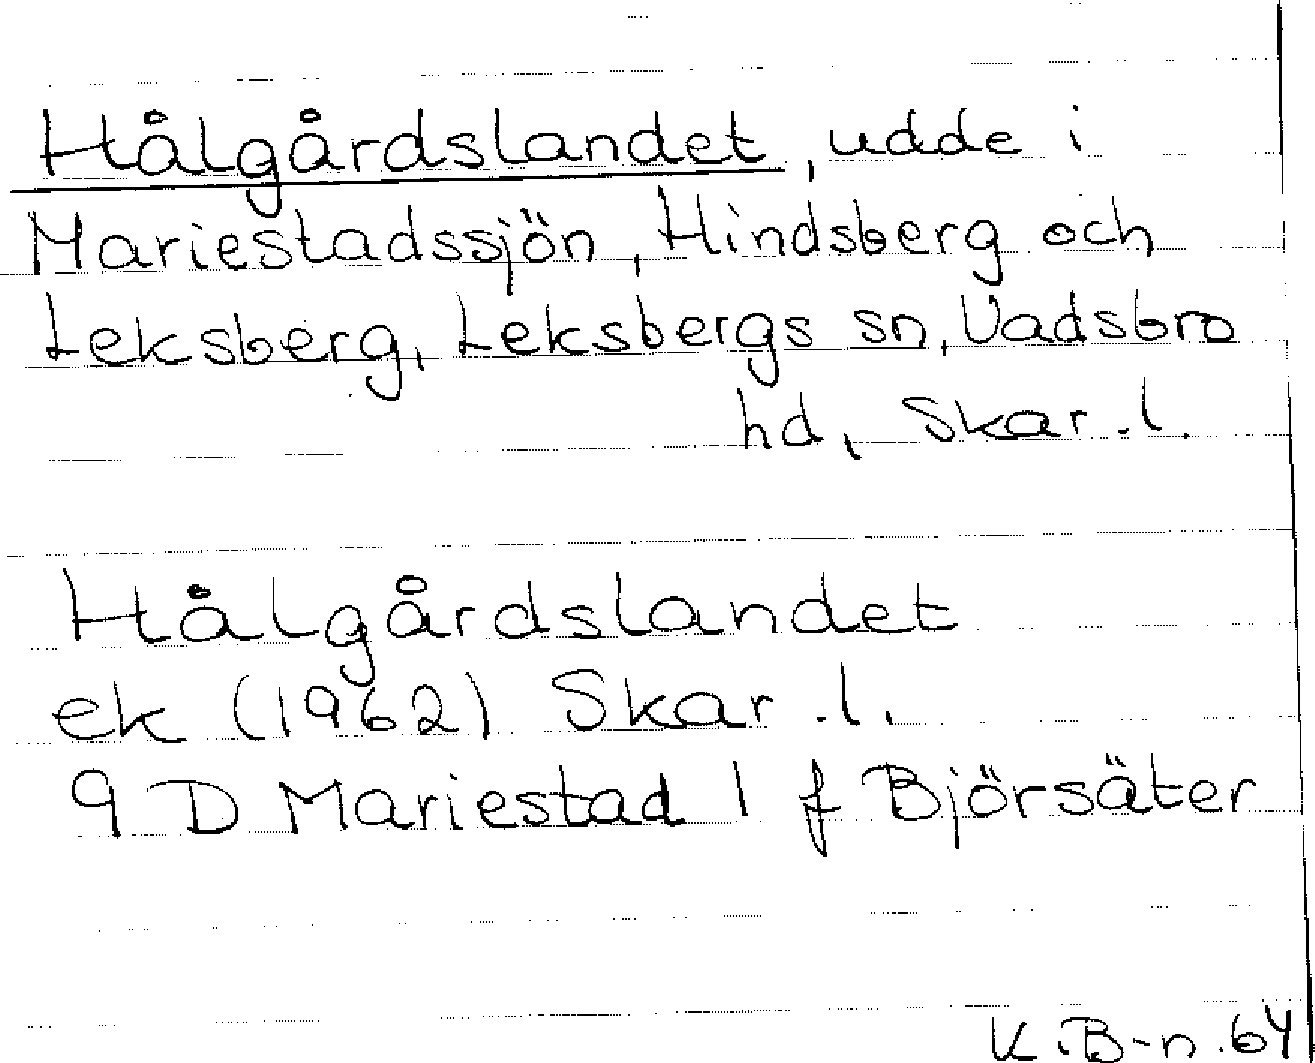 Hålgårdslandet, udde i
Mariestadssjön, Hindsberg och
Leksberg, Leksbergs sn, Vadsbro
hd, Skar. l.
Hålgårdslandet
ek (1962) Skar. l.
9 D Mariestad 1 f Björsäter
K.B-n.64